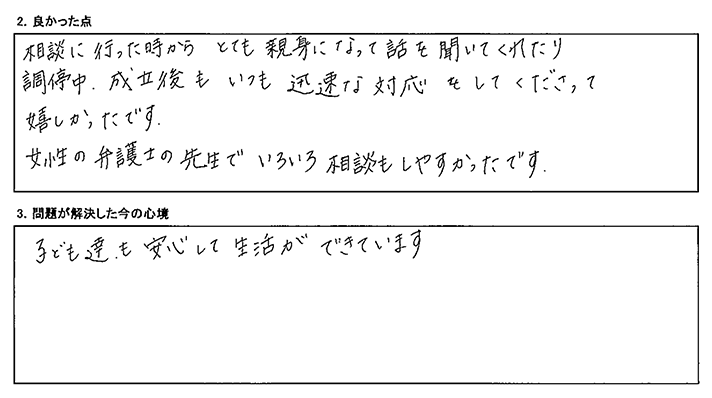 2. 良かった点
相談に行った時から とても親身になって話を聞いてくれたり
調停中. 成立後も いつも 迅速な対応 をしてくださって
嬉しかったです.
女性の弁護士の先生で いろいろ相談もしやすかったです.
3. 問題が解決した今の心境
子ども達も 安心して 生活が できています